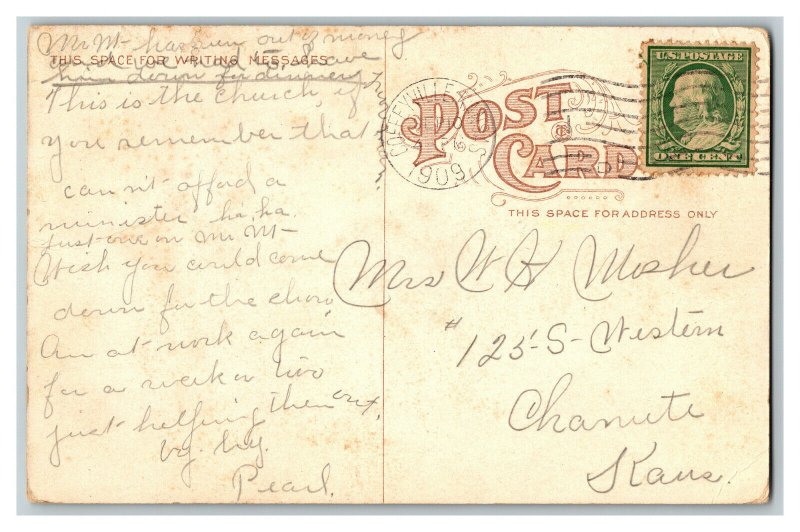 Mr Mt- has run out of money
THIS SPACE FOR WRITING MESSAGES
have
him down for dinner
This is the church, if
you remember that
can not afford a
minister ha, ha.
Just one on Mr. Mt-
Wish you could come
down for the show
Am at work again
for a week or two
just helping them out,
by by.
Pearl.
COFFEYVILLE
1909
POST CARD
THIS SPACE FOR ADDRESS ONLY
U.S. POSTAGE
ONE CENT
Mrs W H Mosher
# 125-S-Western
Chanute
Kans.